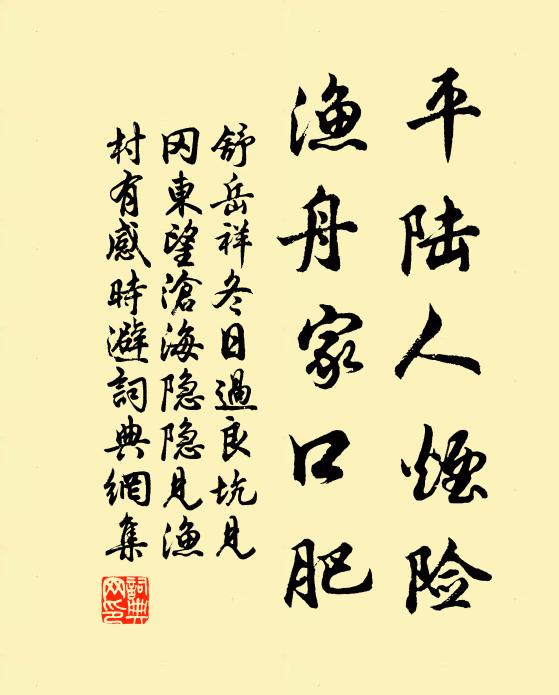 平陆人煙险
渔舟家口肥
舒岳祥冬日過良坑見
冈東望滄海隐隐見漁
村有感時避詞典網集
詞典网印